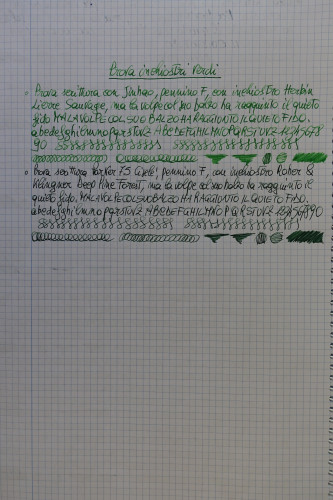 Prova inchiostri verdi
• Prova scrittura con Jinhao, pennino F, con inchiostro Herbin
Lierre Sauvage, ma la volpe col suo balzo ha raggiunto il quieto
fido MA LA VOLPE COL SUO BALZO HA RAGGIUNTO IL QUIETO FIDO.
abcdefghilmnopqrstuvz ABCDEFGHILMNOPQRSTUVZ 12345678
90
• Prova scrittura Parker 75 Cisele, pennino F, con inchiostro Rohrer &
Klingner Deep Pine Forest, ma la volpe col suo balzo ha raggiunto il
quieto fido. MA LA VOLPE COL SUO BALZO HA RAGGIUNTO IL QUIETO FIDO.
abcdefghilmnopqrstuvz ABCDEFGHILMNOPQRSTUVZ 1234567890